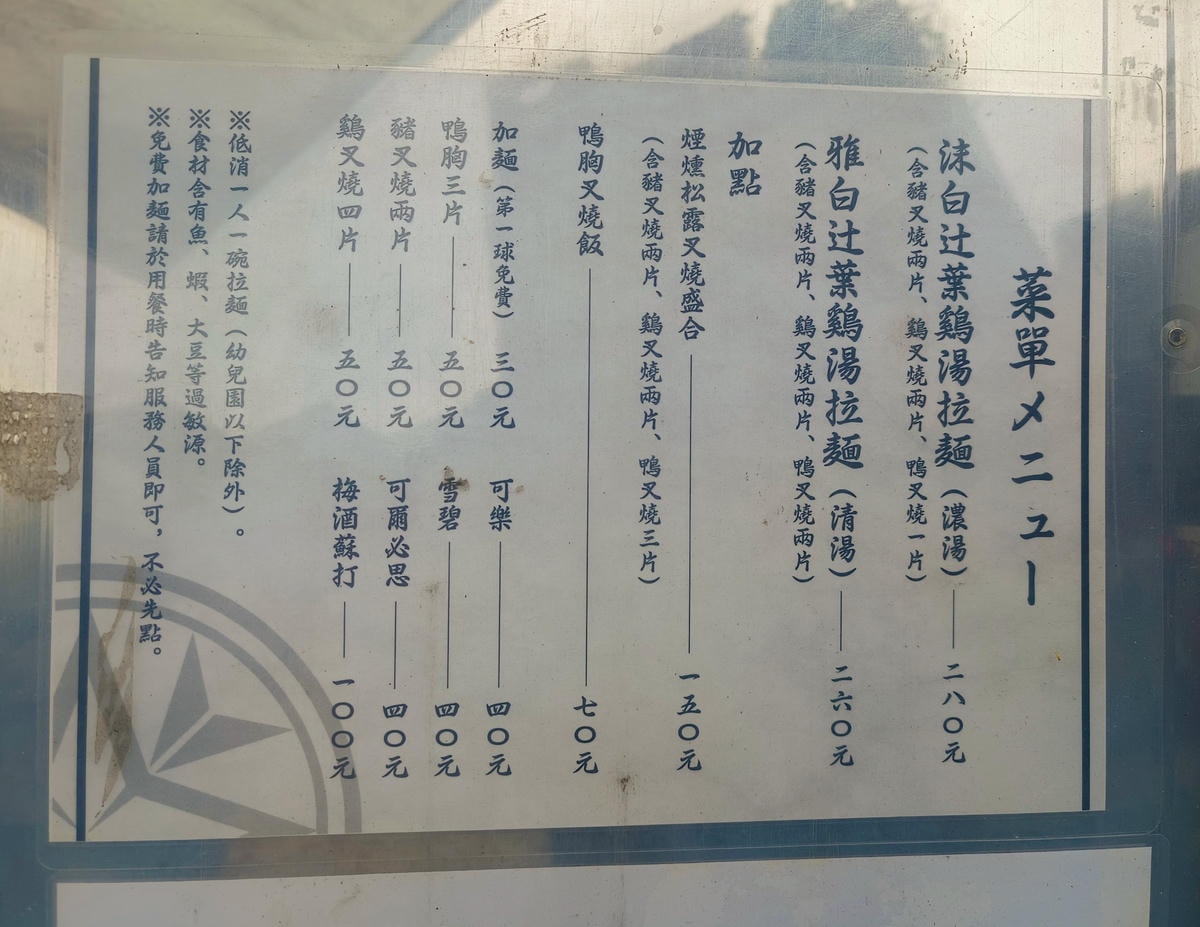 菜單メニュー
沫白辻葉鷄湯拉麵（濃湯）二八〇元
（含豬叉燒兩片、鷄叉燒兩片、鴨叉燒一片）
雅白辻葉鷄湯拉麵（清湯）二六〇元
（含豬叉燒兩片、鷄叉燒兩片、鴨叉燒兩片）
加點
煙燻松露叉燒盛合 一五〇元
（含豬叉燒兩片、鷄叉燒兩片、鴨叉燒三片）
鴨胸叉燒飯 七〇元
加麵（第一球免費）三〇元
可樂 四〇元
鴨胸三片 五〇元
雪碧 四〇元
豬叉燒兩片 五〇元
可爾必思 四〇元
鷄叉燒四片 五〇元
梅酒蘇打 一〇〇元
※低消一人一碗拉麵（幼兒園以下除外）。
※食材含有魚、蝦、大豆等過敏源。
※免費加麵請於用餐時告知服務人員即可，不必先點。